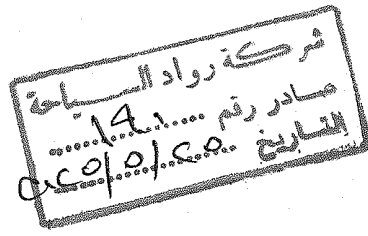 شركة رواد السياحة
صادر رقم ١٩٠
التاريخ ٢٠٢٥/٥/٢٥